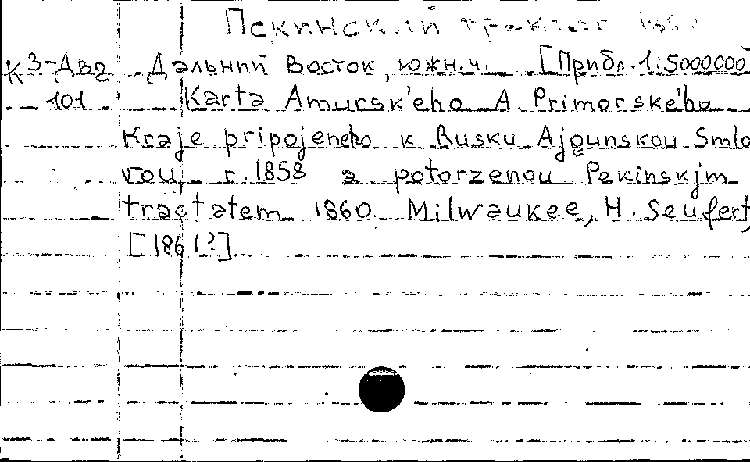 Пекинский трактат 1860
К 3-Дв2 Дальний Восток, южн.ч. [Прибл. 1:5000000
101 Karta Amursk'eho A Primorske'ho
Kraje pripojeneho k Rusku Ajgunskou Smlo
vou, r. 1858 a potvrzenou Pekinskjm
tractatem 1860. Milwaukee, H. Seufert,
[1861?]